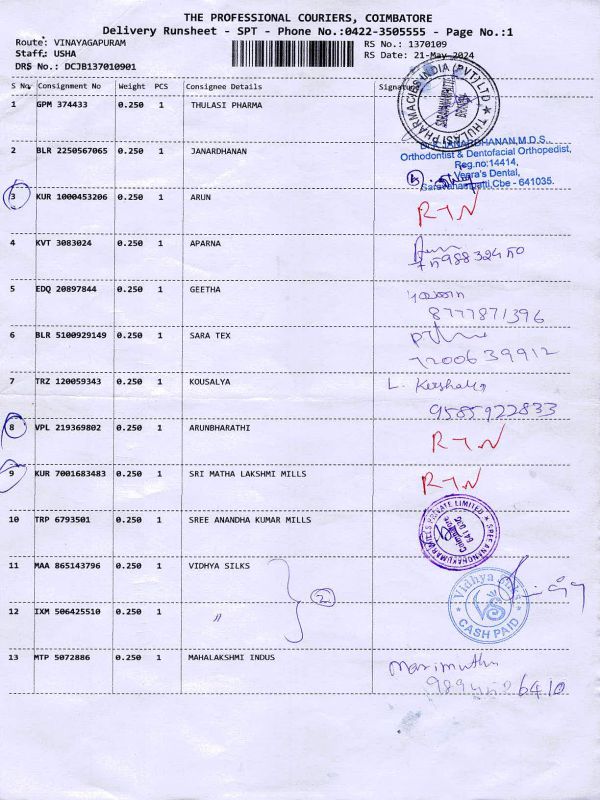 THE PROFESSIONAL COURIERS, COIMBATORE
Delivery Runsheet - SPT - Phone No.:0422-3505555 - Page No.:1
Route: VINAYAGAPURAM RS No.: 1370109
Staff: USHA RS Date: 21-May-2024
DRS No.: DCJB137010901
S No. Consignment No Weight PCS Consignee Details Signature
1 GPM 374433 0.250 1 THULASI PHARMA
THULASI PHARMACIES INDIA (PVT) LTD
SARAVANAMPATTI
2 BLR 2250567065 0.250 1 JANARDHANAN
JANARDHANAN,M.D.S.
Orthodontist & Dentofacial Orthopedist,
Reg.no:14414,
Veera's Dental,
Saravanampatti,Cbe - 641035.
3 KUR 1000453206 0.250 1 ARUN RTN
4 KVT 3083024 0.250 1 APARNA
5 EDQ 20897844 0.250 1 GEETHA
8777871396
6 BLR 5100929149 0.250 1 SARA TEX
7200639912
7 TRZ 120059343 0.250 1 KOUSALYA L. Koushalya
9585922833
8 VPL 219369802 0.250 1 ARUNBHARATHI RTN
9 KUR 7001683483 0.250 1 SRI MATHA LAKSHMI MILLS RTN
10 TRP 6793501 0.250 1 SREE ANANDHA KUMAR MILLS
SREE ANANDHAKUMAR MILLS PRIVATE LIMITED
Coimbatore
641 035
11 MAA 865143796 0.250 1 VIDHYA SILKS
Vidhya
CASH PAID
12 IXM 506425510 0.250 1 " 2
13 MTP 5072886 0.250 1 MAHALAKSHMI INDUS Marimuthu